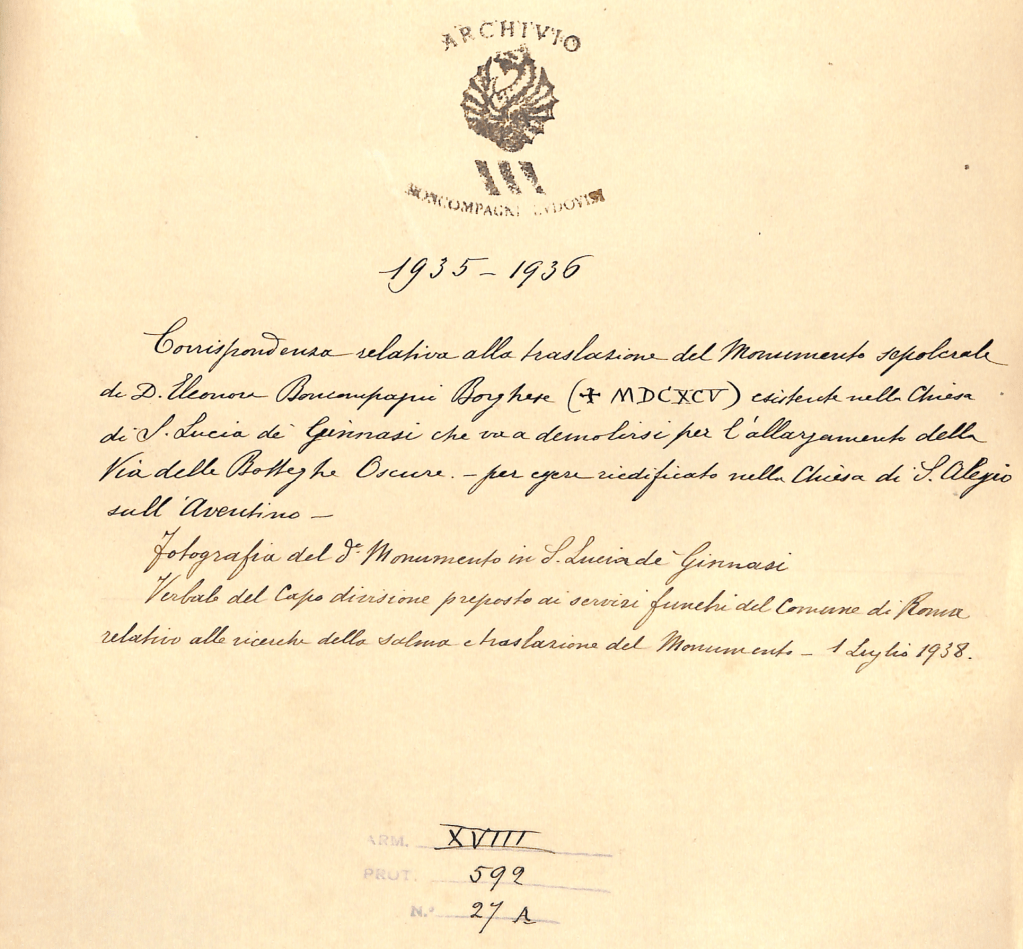 ARCHIVIO
BONCOMPAGNI LVDOVISI
1935 - 1936
Corrispondenza relativa alla traslazione del Monumento sepolcrale
di D. Eleonora Boncompagni Borghese (✝ MDCXCV) esistente nella Chiesa
di S. Lucia de' Ginnasi che va a demolirsi per l'allargamento della
Via delle Botteghe Oscure. - per essere riedificato nella Chiesa di S. Alessio
sull'Aventino -
Fotografia del do. Monumento in S. Lucia de Ginnasi
Verbale del Capo divisione preposto ai servizi funebri del Comune di Roma
relativo alle ricerche della salma e traslazione del Monumento - 1 Luglio 1938.
ARM. XVIII
PROT. 592
N.º 27 A